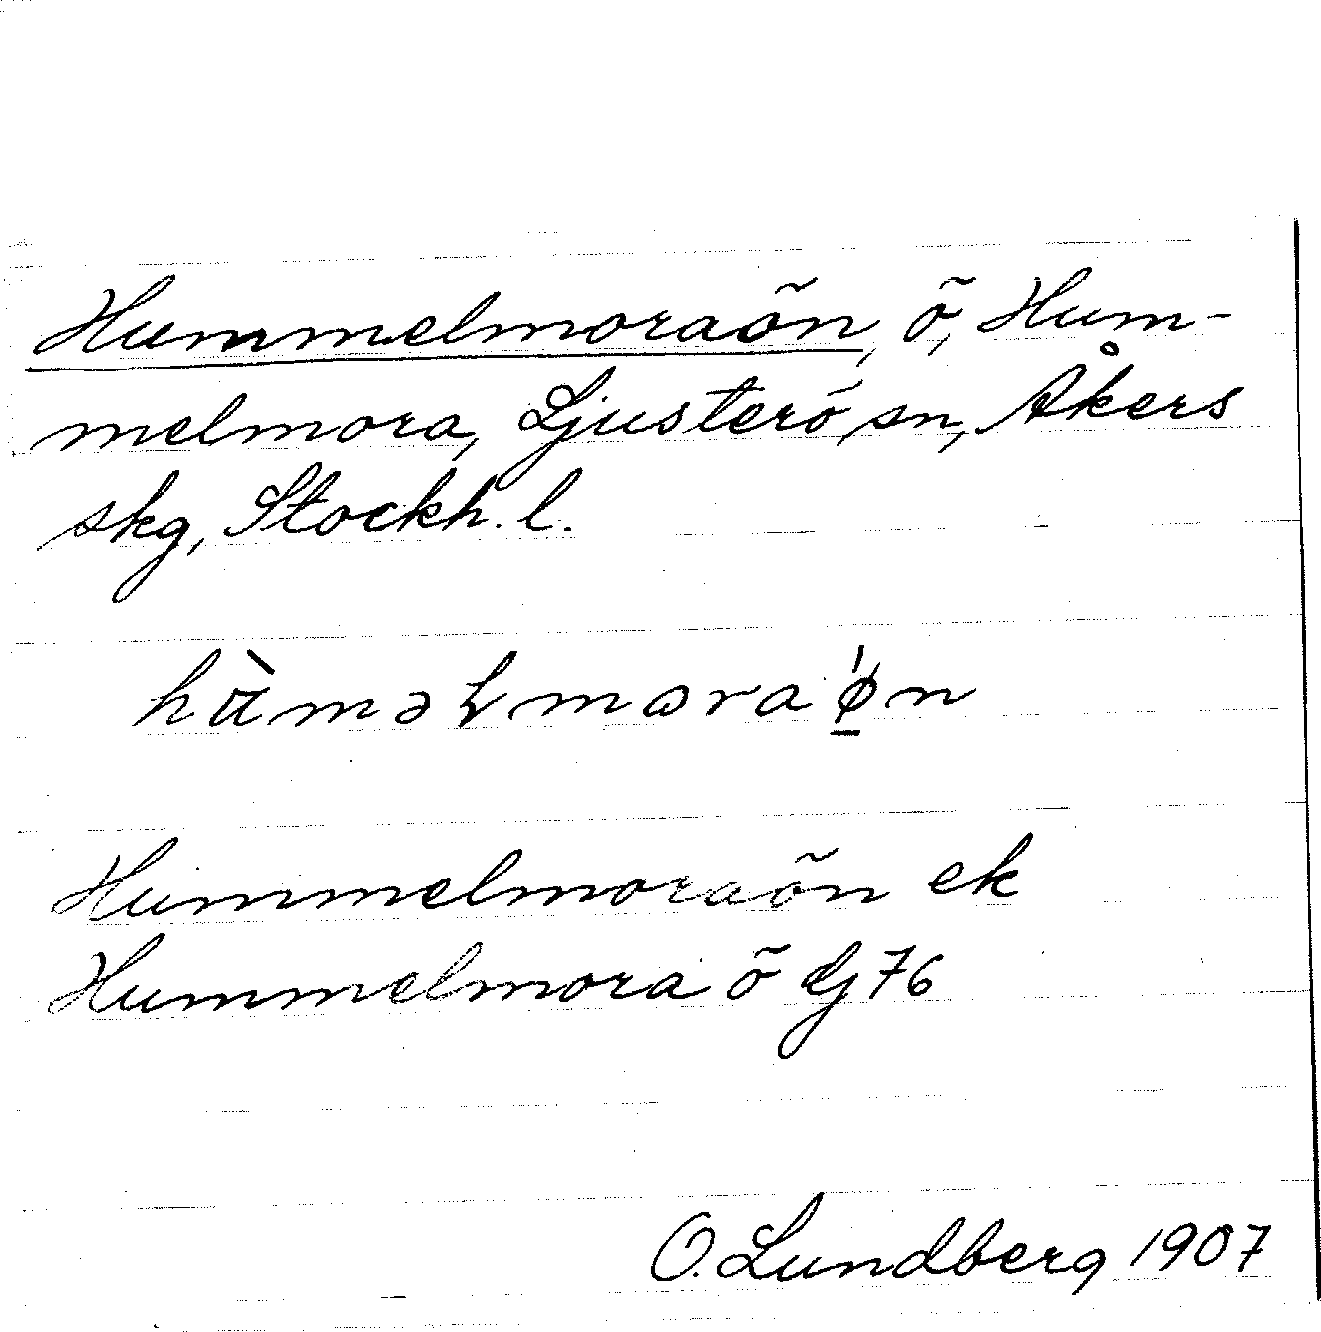 Hummelmoraön, ö, Hum-
melmora, Ljusterö sn, Åkers
skg, Stockh. l.
Hummelmoraön ek
Hummelmora ö dj 76
O. Lundberg 1907